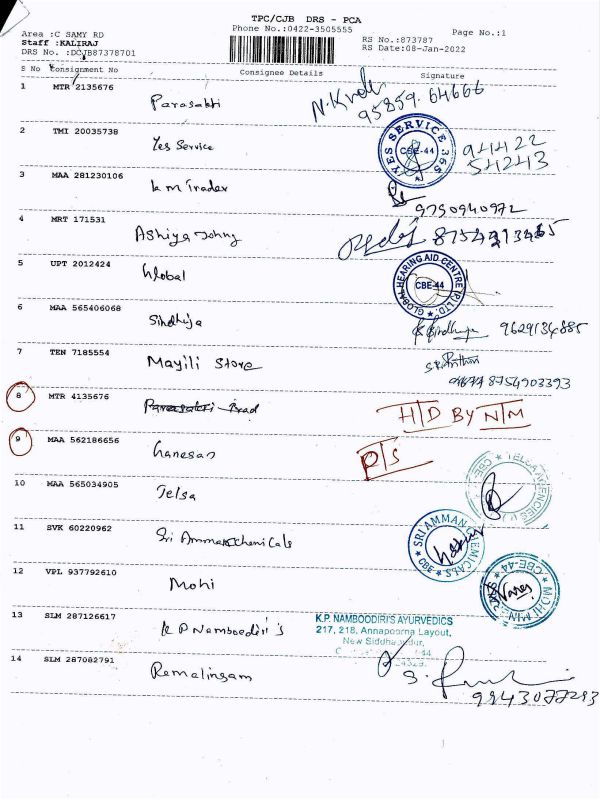 TPC/CJB DRS - PCA
Phone No.:0422-3505555
Page No.:1
Area :C SAMY RD
RS No.:873787
Staff :KALIRAJ
RS Date:08-Jan-2022
DRS No. :DCJB87378701
S No Consignment No Consignee Details Signature
1 MTR 2135676 Parasakti
95859.64666
2 TMI 20035738 Yes Service YES SERVICE 365 CBE-44 94422
54243
3 MAA 281230106 K M Trader
9750940972
4 MRT 171531 Ashiya Johny
5 UPT 2012424 Global GLOBAL HEARING AID CENTRE (P) LTD. CBE-44
6 MAA 565406068 Sindhuja 9629134885
7 TEN 7185554 Mayili Store
8754903393
8 MTR 4135676 Parasakti H/D BY N/M
9 MAA 562186656 Ganesan D/S
10 MAA 565034905 Telsa TELSA AGENCIES CBE
11 SVK 60220962 Sri Amman Chemicals SRI AMMAN CHEMICALS CBE
12 VPL 937792610 Mohi MOHI CBE-44
13 SLM 287126617 K P Namboodiri's K.P. NAMBOODIRI'S AYURVEDICS
217, 218, Annapoorna Layout,
New
14 SLM 287082791 Ramalingam
9943077293